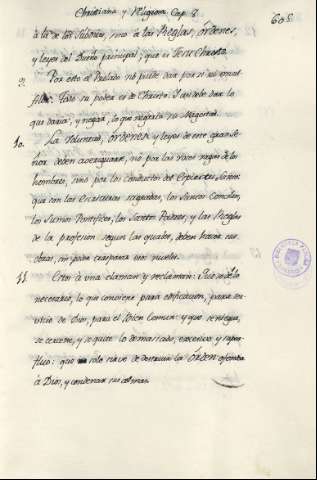 Christiana y Religiosa Cap. 8
608
à la de los Subditos, sino à las Reglas, órdenes,
y leyes del Dueño principal; que es Jesu Christo.
9. Por esto el Prelado no puede dar por si ni una
Todo su poder es de Christo. Y asi debe dar lo
que daria, y negar, lo que negaria su Magestad.
10. La Voluntad, órdenes, y leyes de este gran Se-
ñor deben averiguarse, no por las voces vagas de los
hombres, sino por los conductos del Espiritu Santo:
que son las Escrituras sagradas, los Santos Concilios,
los Sumos Pontifices, los Santos Padres, y las Reglas
de la profesion segun las quales, deben hacer sus
obras, sin poder traspasar
11. Estos à una claman y reclaman: Que se dè lo
necesario, lo que conviene para edificacion, para ser-
vicio de Dios, para el bien Comun: y que se niegue,
se cercene, y se quite lo demasiado, excesivo, y super-
fluo: que solo sirve de destruir la Órden ofender
à Dios, y condenar sus almas.